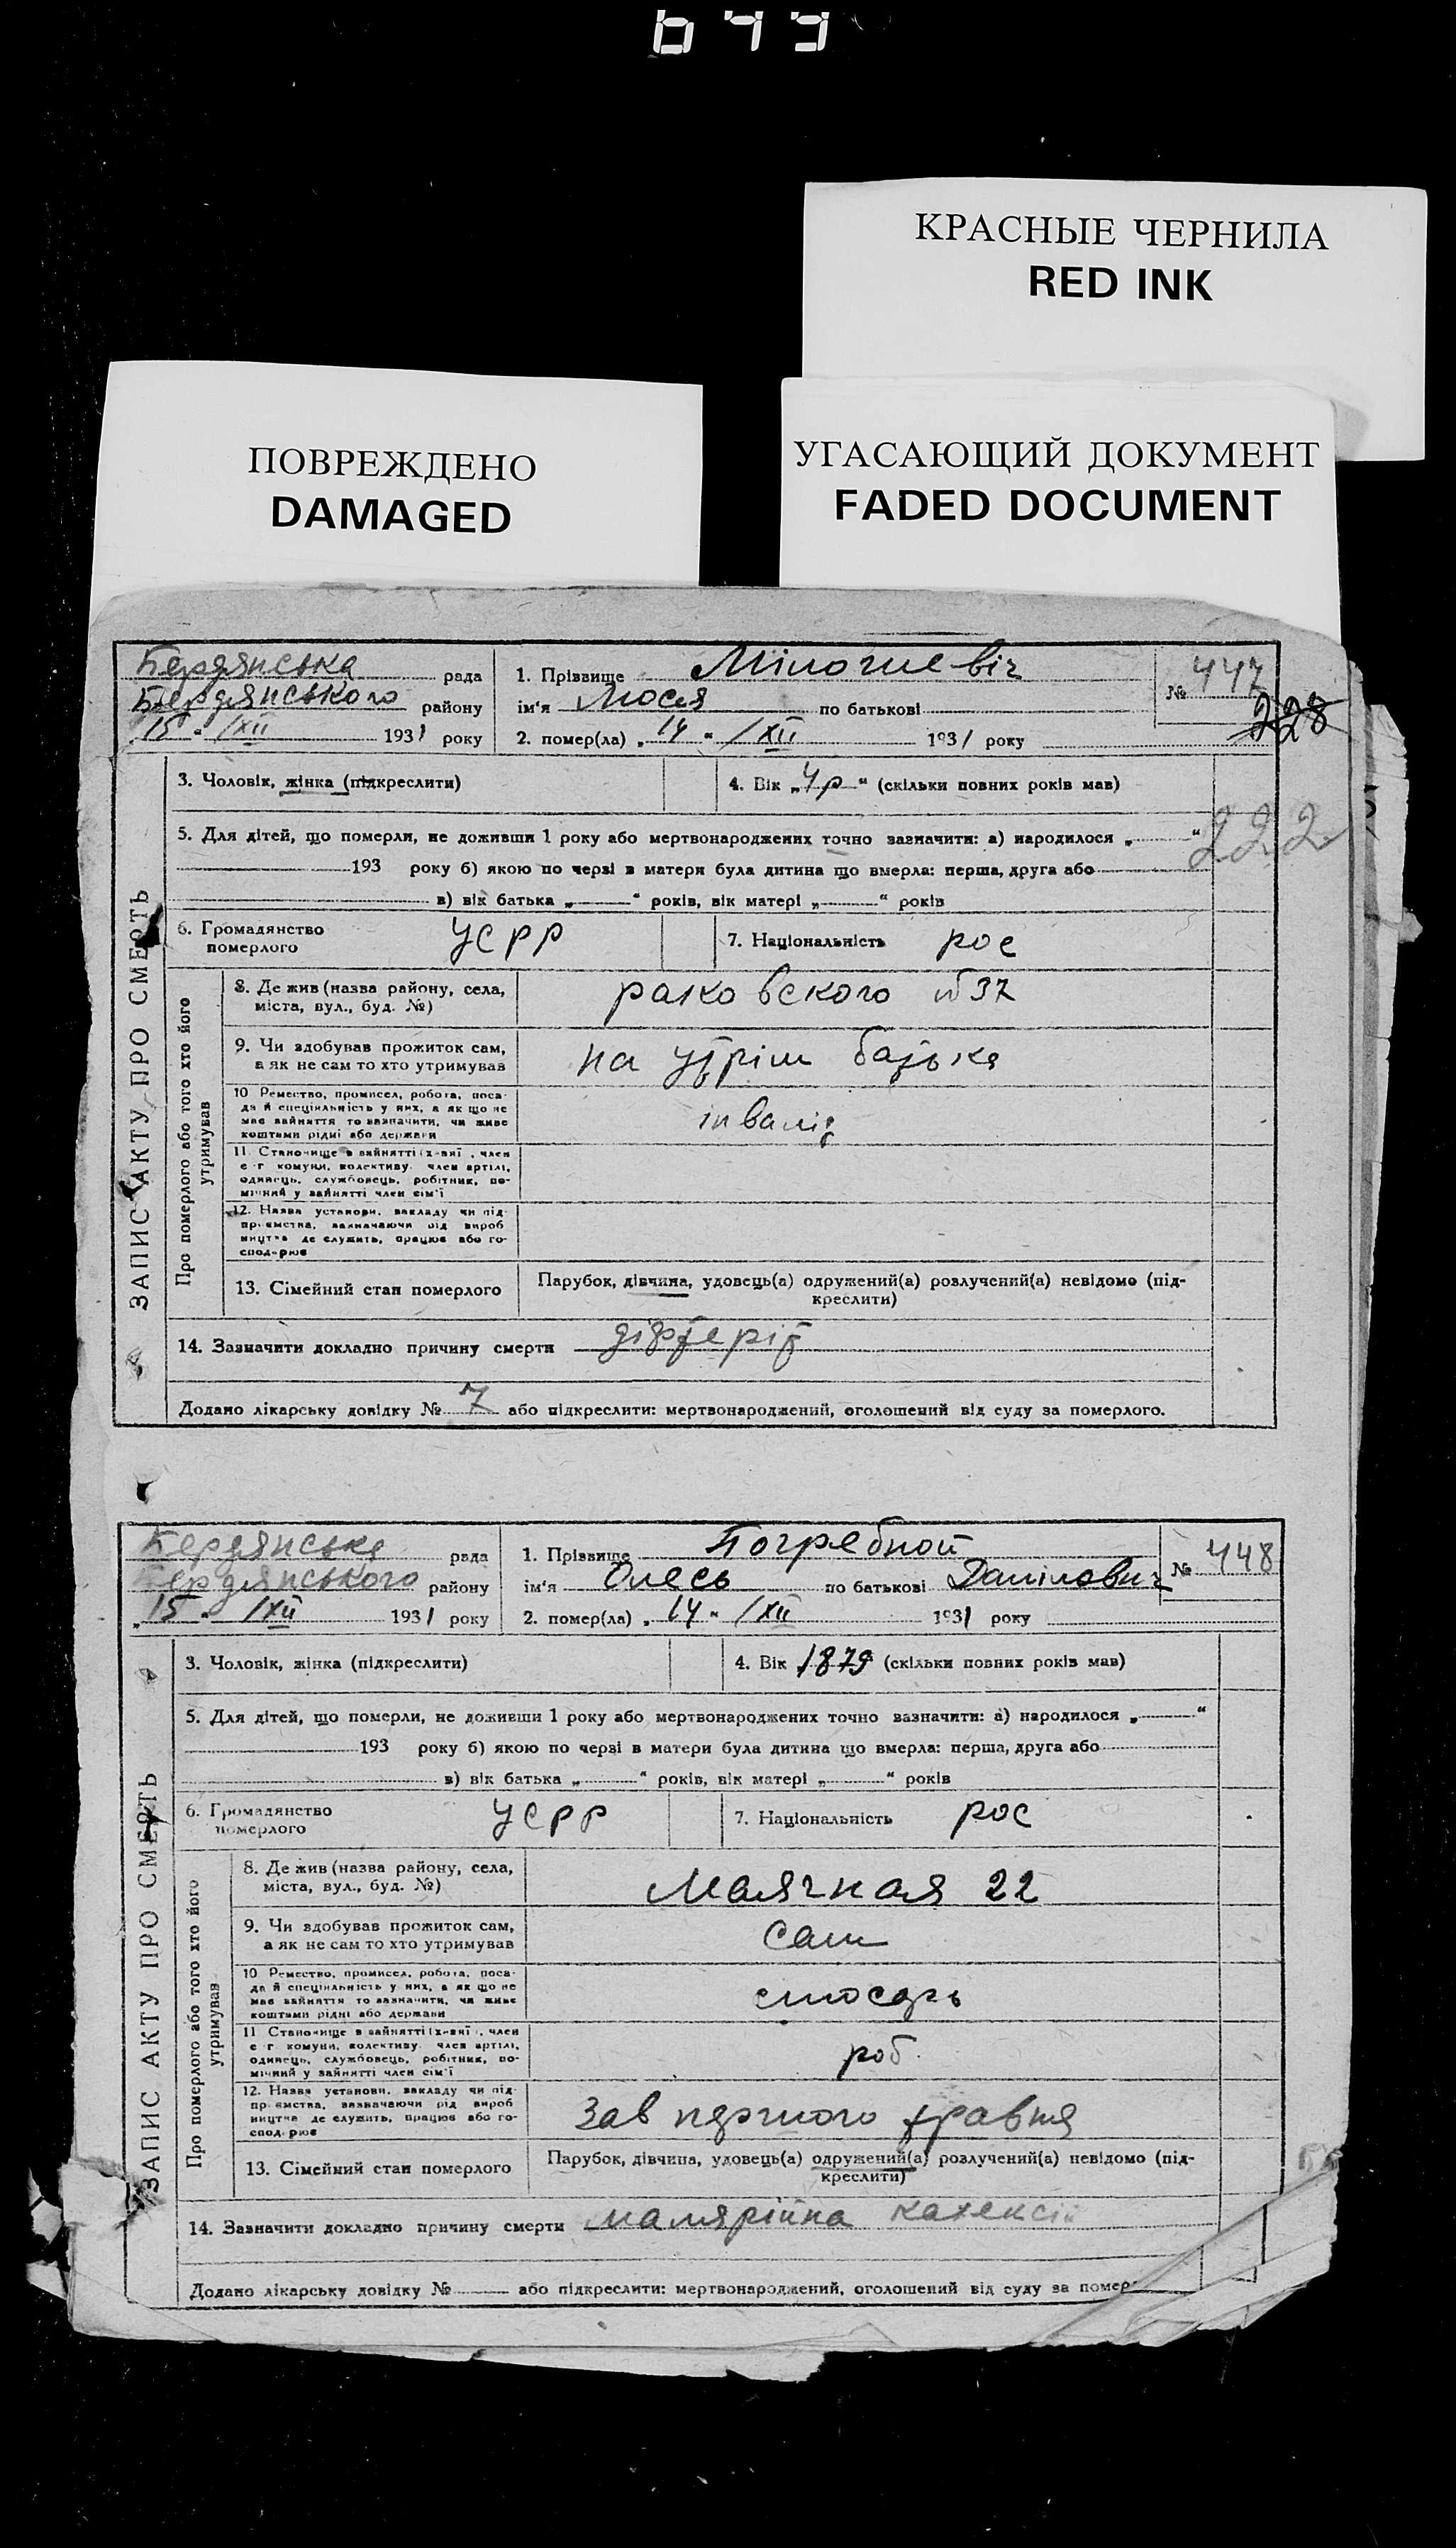 649
КРАСНЫЕ ЧЕРНИЛА
RED INK
ПОВРЕЖДЕНО
DAMAGED
УГАСАЮЩИЙ ДОКУМЕНТ
FADED DOCUMENT
ЗАПИС АКТУ ПРО СМЕРТЬ
Бердянська рада
Бердянського району
15 " /XII 1931 року
1. Прізвище
№ 447
228
ім'я Люся по батькові
2. помер(ла) „ 14 " /XII 1931 року
3. Чоловік, жінка (підкреслити) 4. Вік „ 4 р " (скільки повних років мав)
5. Для дітей, що померли, не доживши 1 року або мертвонароджених точно зазначити: а) народилося „ "
222
193 року б) якою по черзі в матери була дитина що вмерла: перша, друга або
в) вік батька „ " років, вік матері „ " років
6. Громадянство померлого УСРР 7. Національність рос
Про померлого або того хто його утримував
8. Де жив (назва району, села,
міста, вул., буд. №)
раковского № 37
9. Чи здобував прожиток сам,
а як не сам то хто утримував
на утрім батька
10 Ремество, промисел, робота, поса-
да й спеціяльність у них, а як що не
має зайняття то зазначити, чи живе
коштами рідні або держави
інвалід
11. Становище в зайнятті (х-вяї, член
с-г комуни, колективу, член артілі,
одинець, службовець, робітник, по-
мічний у зайнятті член сім'ї
12. Назва установи, закладу чи під-
приємства, зазначаючи від вироб
ництва де служить, працює або го-
сподарює
13. Сімейний стан померлого
Парубок, дівчина, удовець(а) одружений(а) розлучений(а) невідомо (під-
креслити)
14. Зазначити докладно причину смерти діфтеріт
Додано лікарську довідку № 7 або підкреслити: мертвонароджений, оголошений від суду за померлого.
ЗАПИС АКТУ ПРО СМЕРТЬ
Бердянська рада
Бердянського району
„ 15 " /XII 1931 року
1. Прізвище Погребной
№ 448
ім'я Олесь по батькові Данілович
2. помер(ла) „ 14 " /XII 1931 року
3. Чоловік, жінка (підкреслити) 4. Вік 1879 (скільки повних років мав)
5. Для дітей, що померли, не доживши 1 року або мертвонароджених точно зазначити: а) народилося „ "
193 року б) якою по черзі в матери була дитина що вмерла: перша, друга або
в) вік батька „ " років, вік матері „ " років
6. Громадянство померлого УСРР 7. Національність рос
Про померлого або того хто його утримував
8. Де жив (назва району, села,
міста, вул., буд. №)
Маячная 22
9. Чи здобував прожиток сам,
а як не сам то хто утримував
сам
10 Ремество, промисел, робота, поса-
да й спеціяльність у них, а як що не
має зайняття то зазначити, чи живе
коштами рідні або держави
слюсарь
11 Становище в зайнятті (х-вяї, член
с-г комуни, колективу, член артілі,
одинець, службовець, робітник, по-
мічний у зайнятті член сім'ї
роб
12. Назва установи, закладу чи під-
приємства, зазначаючи рід вироб
ництва де служить, працює або го-
сподарює
Зав першого травня
13. Сімейний стан померлого
Парубок, дівчина, удовець(а) одружений(а) розлучений(а) невідомо (під-
креслити)
14. Зазначити докладно причину смерти малярійна кахексія
Додано лікарську довідку № або підкреслити: мертвонароджений, оголошений від суду за помер